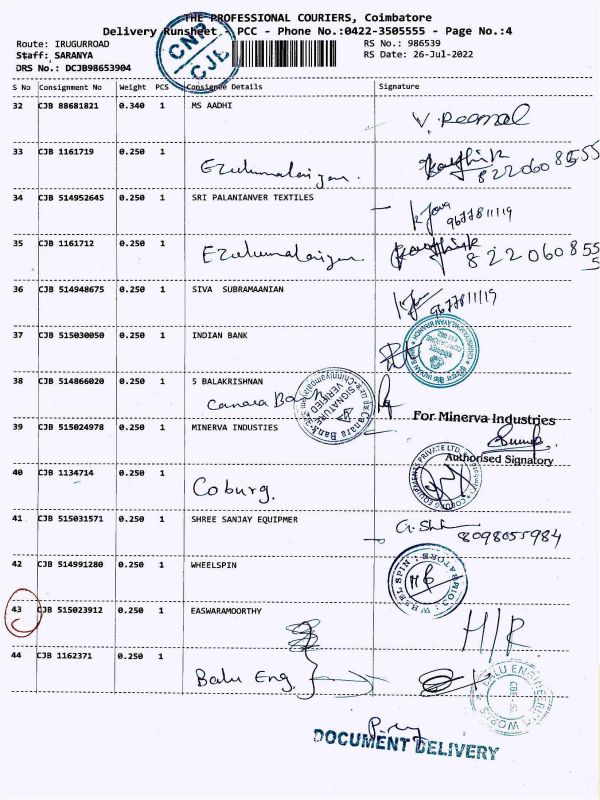 THE PROFESSIONAL COURIERS, Coimbatore
Delivery Runsheet - PCC - Phone No.:0422-3505555 - Page No.:4
Route: IRUGURROAD RS No.: 986539
Staff: SARANYA RS Date: 26-Jul-2022
DRS No.: DCJB98653904
CNR
CJL
S No Consignment No Weight PCS Consignee Details Signature
32 CJB 88681821 0.340 1 MS AADHI
33 CJB 1161719 0.250 1
Ezulumalaiyan. Karthik
34 CJB 514952645 0.250 1 SRI PALANIANVER TEXTILES
9677811119
35 CJB 1161712 0.250 1
Ezulumalaiyan Karthik
36 CJB 514948675 0.250 1 SIVA SUBRAMAANIAN
9677811119
37 CJB 515030050 0.250 1 INDIAN BANK
38 CJB 514866020 0.250 1 S BALAKRISHNAN
Canara Bank
SIGNATURE VERIFIED
For Minerva Industries
39 CJB 515024978 0.250 1 MINERVA INDUSTIES
Authorised Signatory
40 CJB 1134714 0.250 1
Coburg.
41 CJB 515031571 0.250 1 SHREE SANJAY EQUIPMER
8098055984
42 CJB 514991280 0.250 1 WHEELSPIN
WHEEL SPIN
43 CJB 515023912 0.250 1 EASWARAMOORTHY
H/R
44 CJB 1162371 0.250 1
Balu Eng.
BALU ENGINEERING WORKS
DOCUMENT DELIVERY